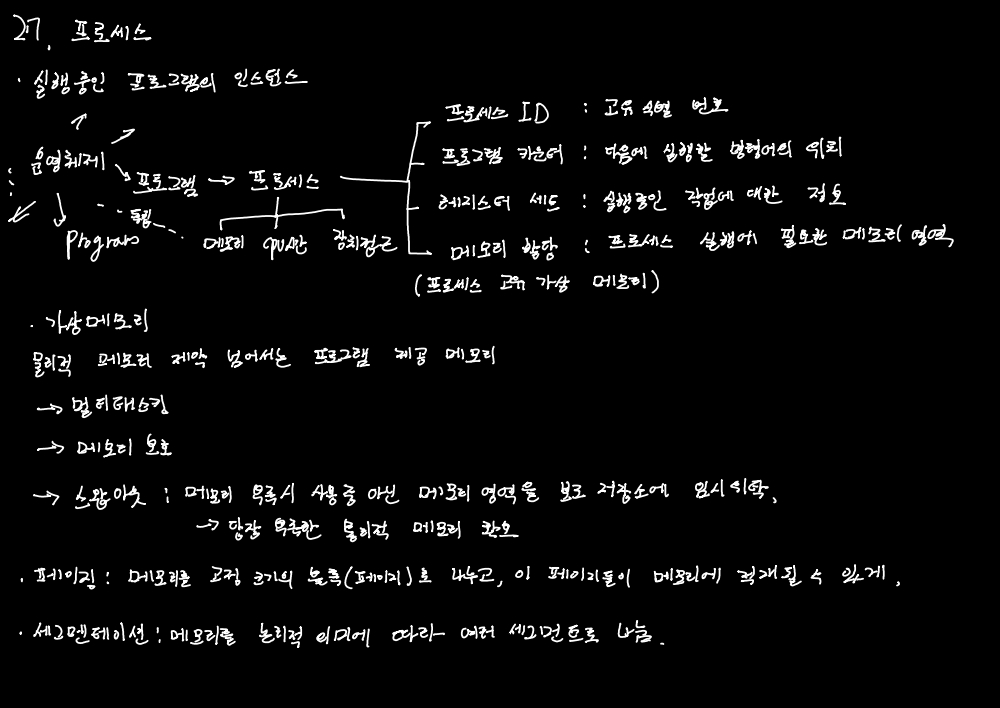 27. 프로세스
· 실행중인 프로그램의 인스턴스
운영체제 → 프로그램 → 프로세스
Program
독립
메모리 CPU시간 장치접근
프로세스 ID : 고유 식별 번호
프로그램 카운터 : 다음에 실행할 명령어의 위치
레지스터 세트 : 실행중인 작업에 대한 정보
메모리 할당 : 프로세스 실행에 필요한 메모리 영역
(프로세스 고유 가상 메모리)
· 가상메모리
물리적 메모리 제약 넘어서는 프로그램 제공 메모리
→ 멀티태스킹
→ 메모리 보호
→ 스왑아웃 : 메모리 부족시 사용중 아닌 메모리 영역을 보조 저장소에 임시위탁,
→ 당장 부족한 물리적 메모리 확보
· 페이징 : 메모리를 고정 크기의 블록(페이지)로 나누고, 이 페이지들이 메모리에 적재될 수 있게,
· 세그멘테이션 : 메모리를 논리적 의미에 따라 여러 세그먼트로 나눔.